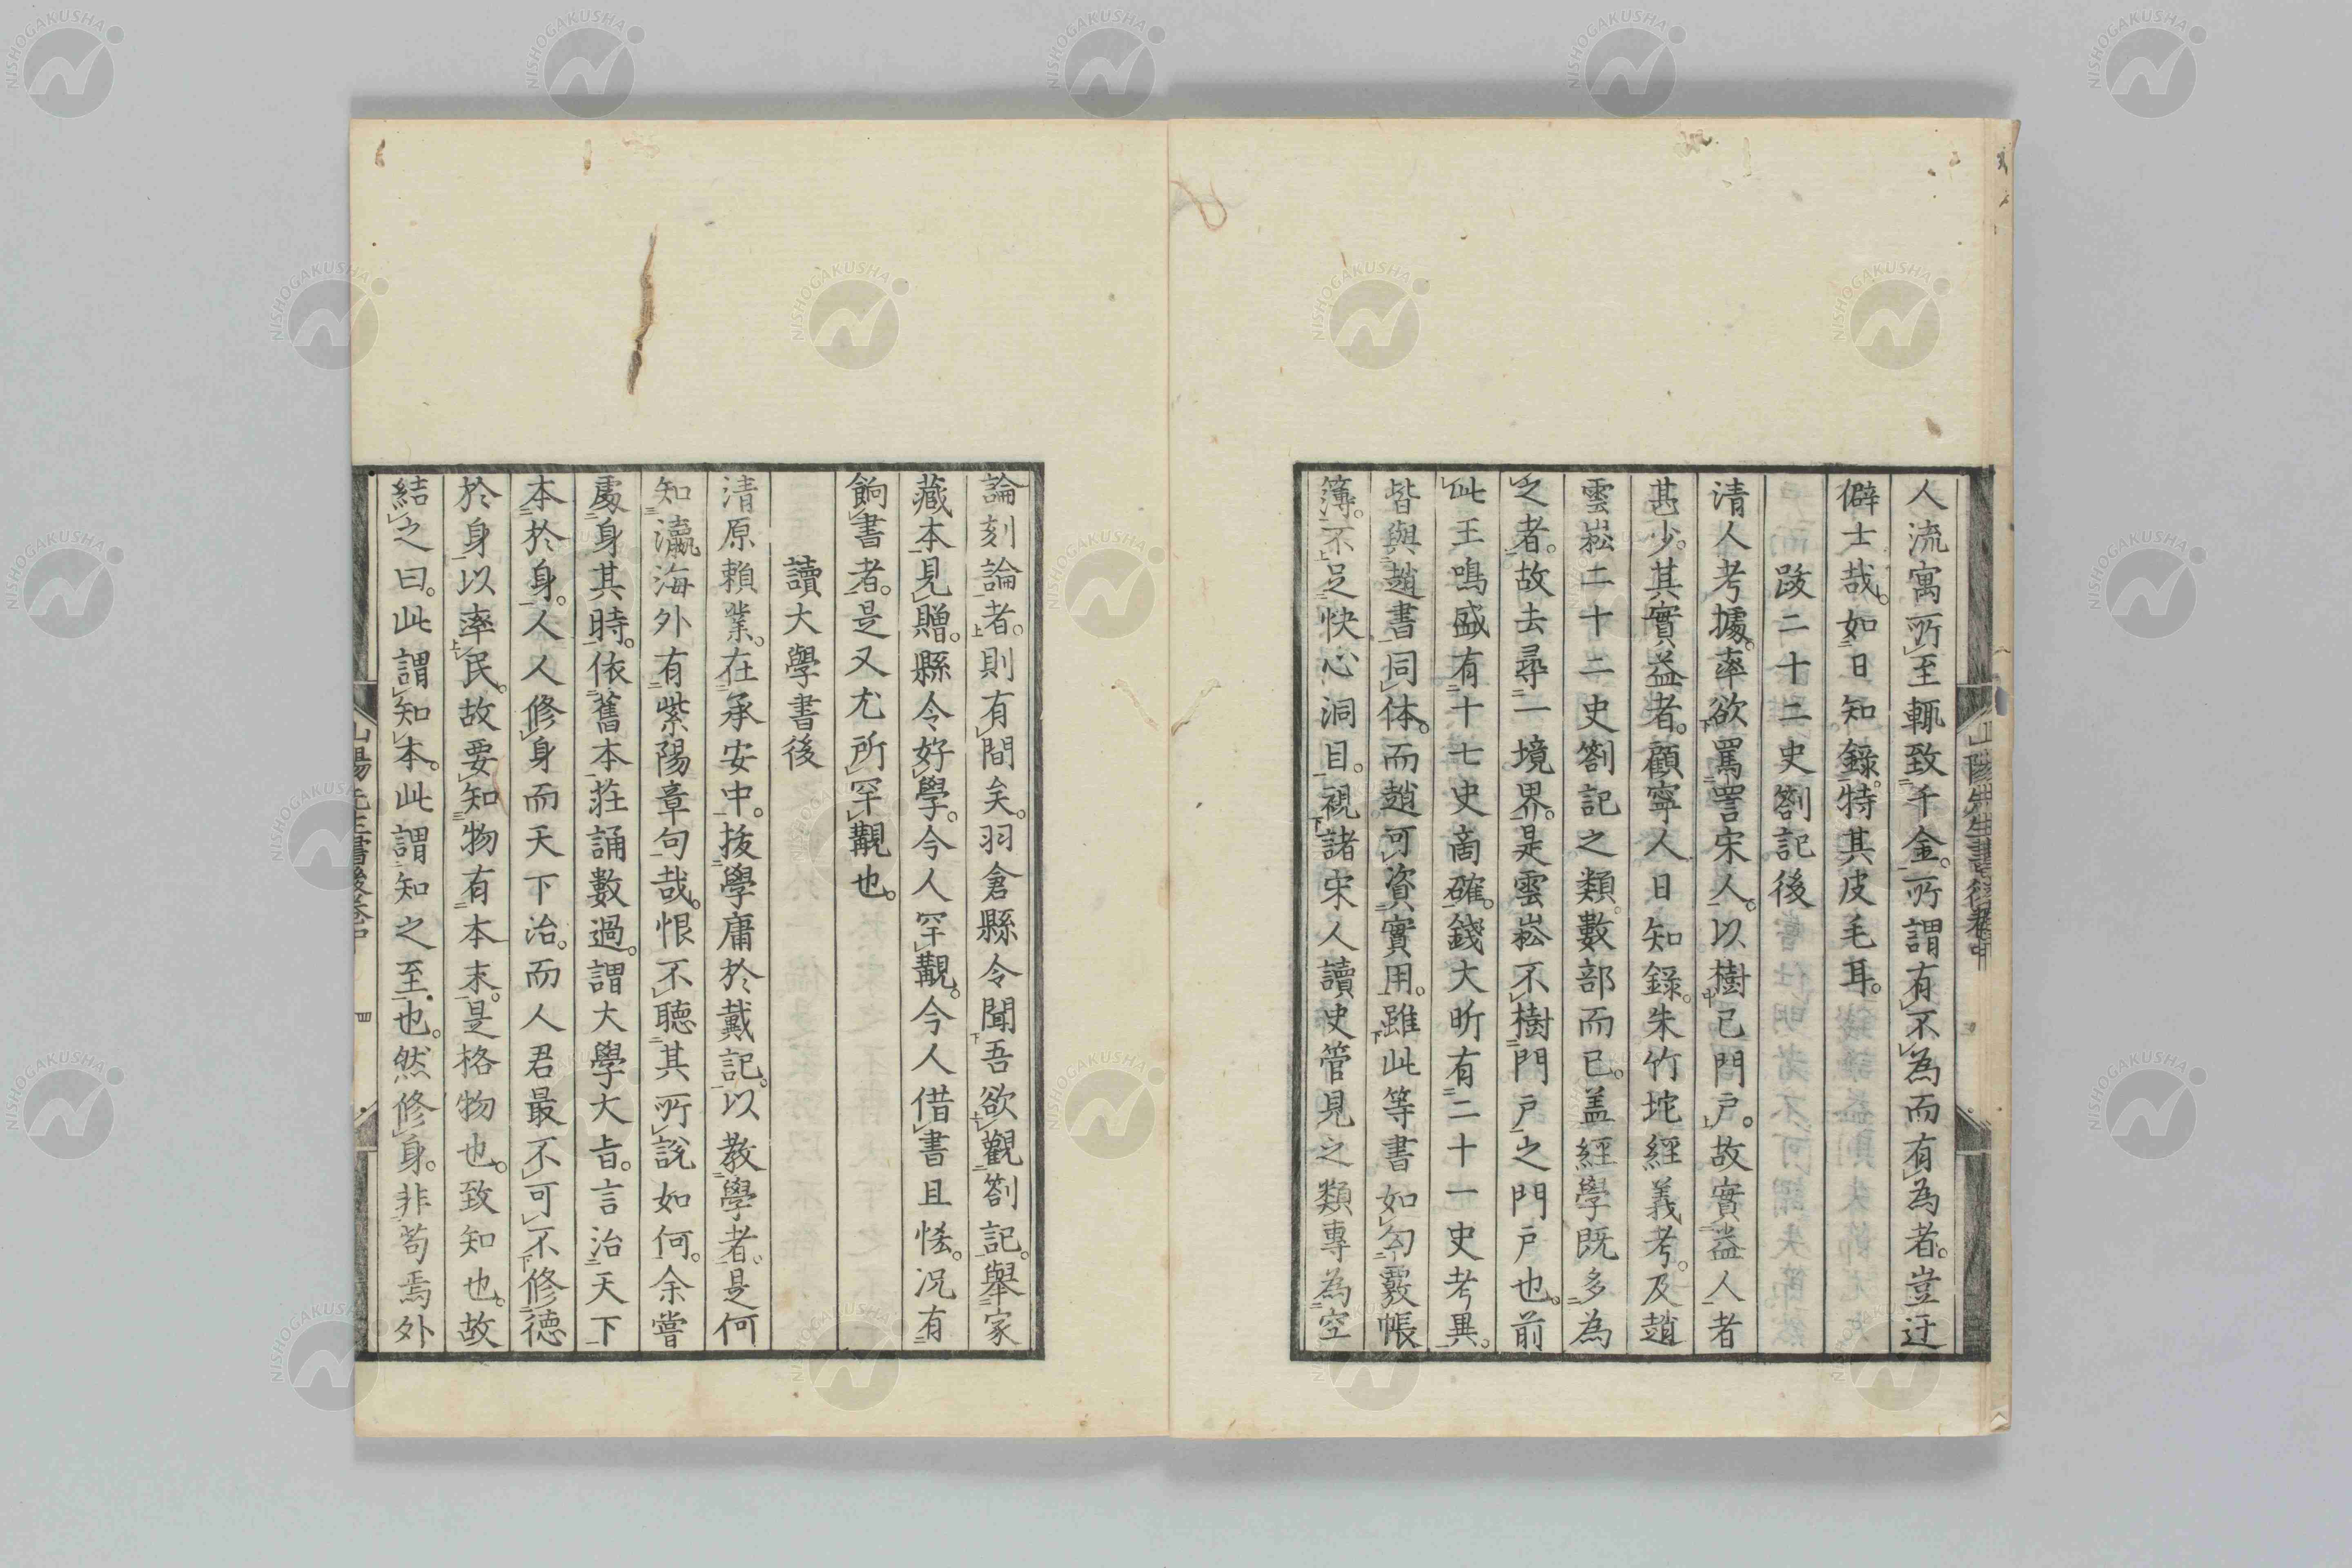 人流寓所至輒致千金。所謂有不為而有為者。豈迂
僻士哉。如日知錄。特其皮毛耳。
跋二十二史劄記後
清人考據。率欲罵詈宋人。以樹已門戶。故實益人者
甚少。其實益者。顧寧人日知錄。朱竹坨經義考。及趙
雲崧二十二史劄記之類。數部而已。盖經學既多為
之者。故去尋一境界。是雲崧不樹門戶之門戶也。前
此王鳴盛有十七史商確。錢大昕有二十一史考異。
皆與趙書同体。而趙可資實用。雖此等書如勾覈帳
簿。不足快心洞目。視諸宋人讀史管見之類專為空
論刻論者。則有間矣。羽倉縣令聞吾欲觀劄記。舉家
藏本見贈。縣令好學。今人罕觀。今人借書且恡。况有
餉書者。是又尤所罕覯也。
讀大學書後
清原賴業。在承安中。抜學庸於戴記。以教學者。是何
知瀛海外有紫陽章句哉。恨不聽其所說如何。余嘗
處身其時。依舊本莊誦數過。謂大學大旨。言治天下
本於身。人人修身而天下治。而人君最不可不修德
於身以率民。故要知物有本末。是格物也。致知也。故
結之曰。此謂知本。此謂知之至也。然修身。非苟焉外
山陽先生書後卷中
山陽先生書後卷中
四
NISHOGAKUSHA